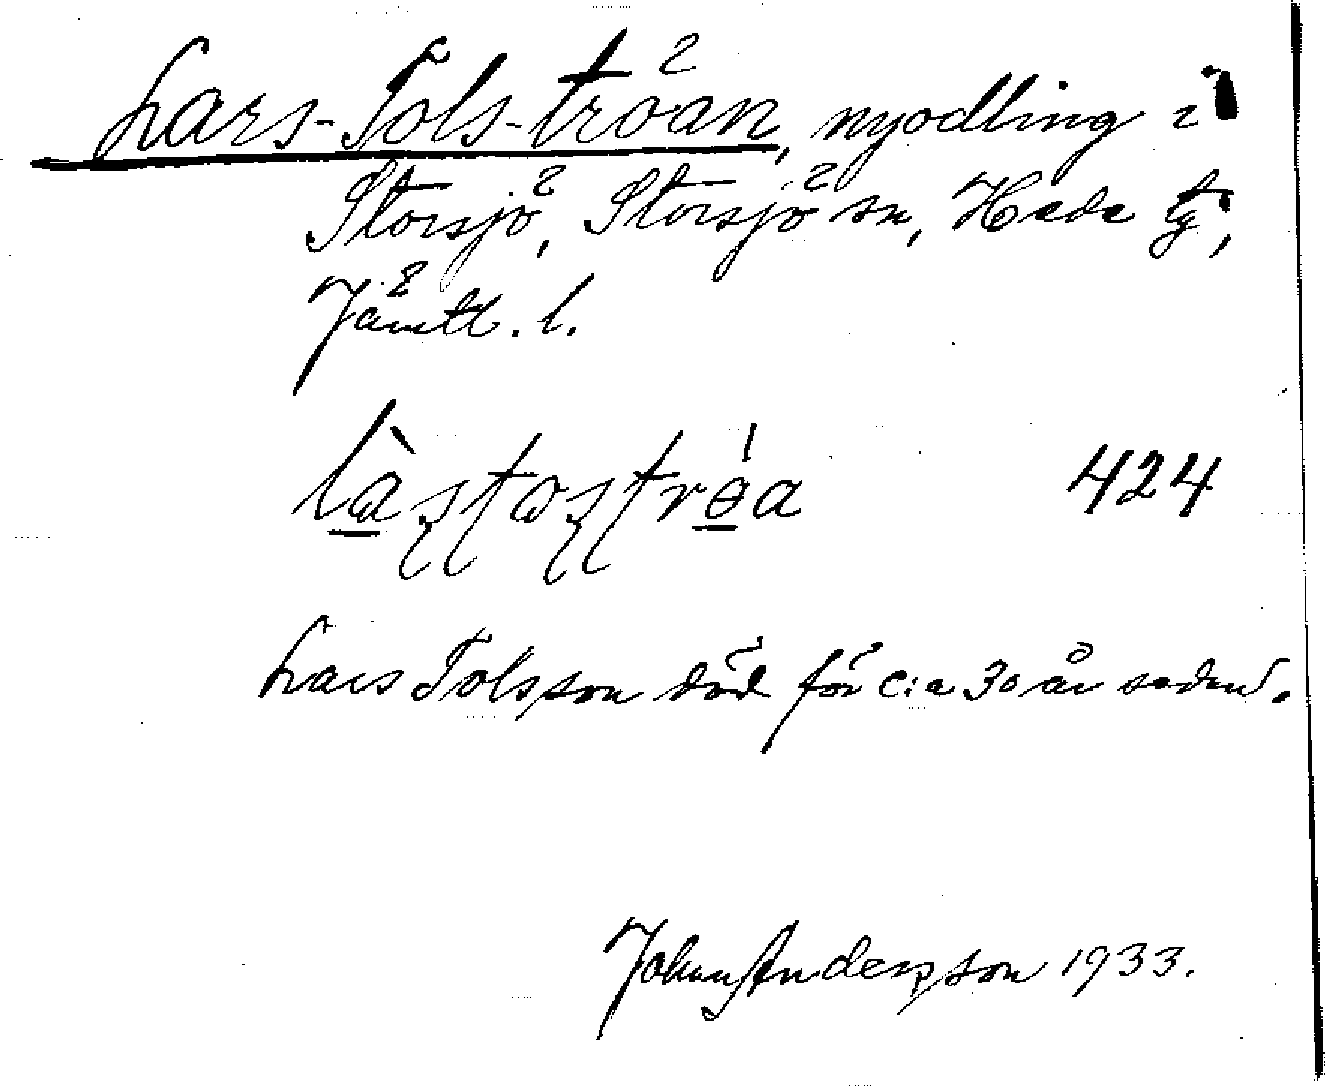 Lars-Tols-tröan, nyodling i
Storsjö, Storsjö sn, Hede tg,
Jämtl. l.
424
Lars Tolsson död för c:a 30 år sedan.
Johan Andersson 1933.